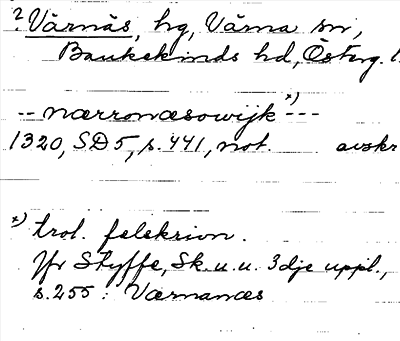 ? Värnäs, hg, Värna sn,
Bankekinds hd, Österg. l.
-- nærronæsowijk x) ---
1320, SD 5, s. 441, not. avskr
x) trol. felskrivn.
Jfr Styffe, Sk. u. u. 3dje uppl.,
s. 255 :Værnanæs